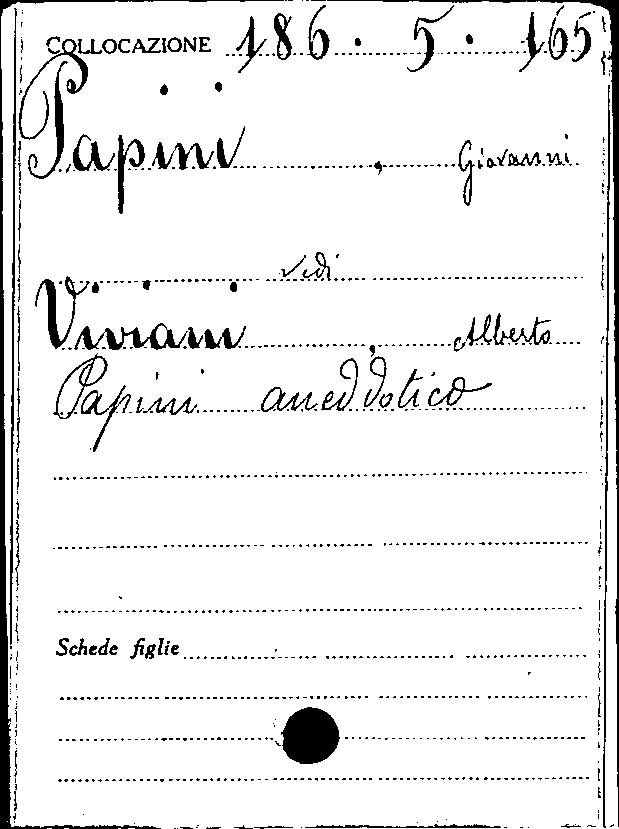 COLLOCAZIONE 186. 5. 165
Papini, Giovanni
vedi
Viviani, Alberto
Papini aneddotico
Schede figlie